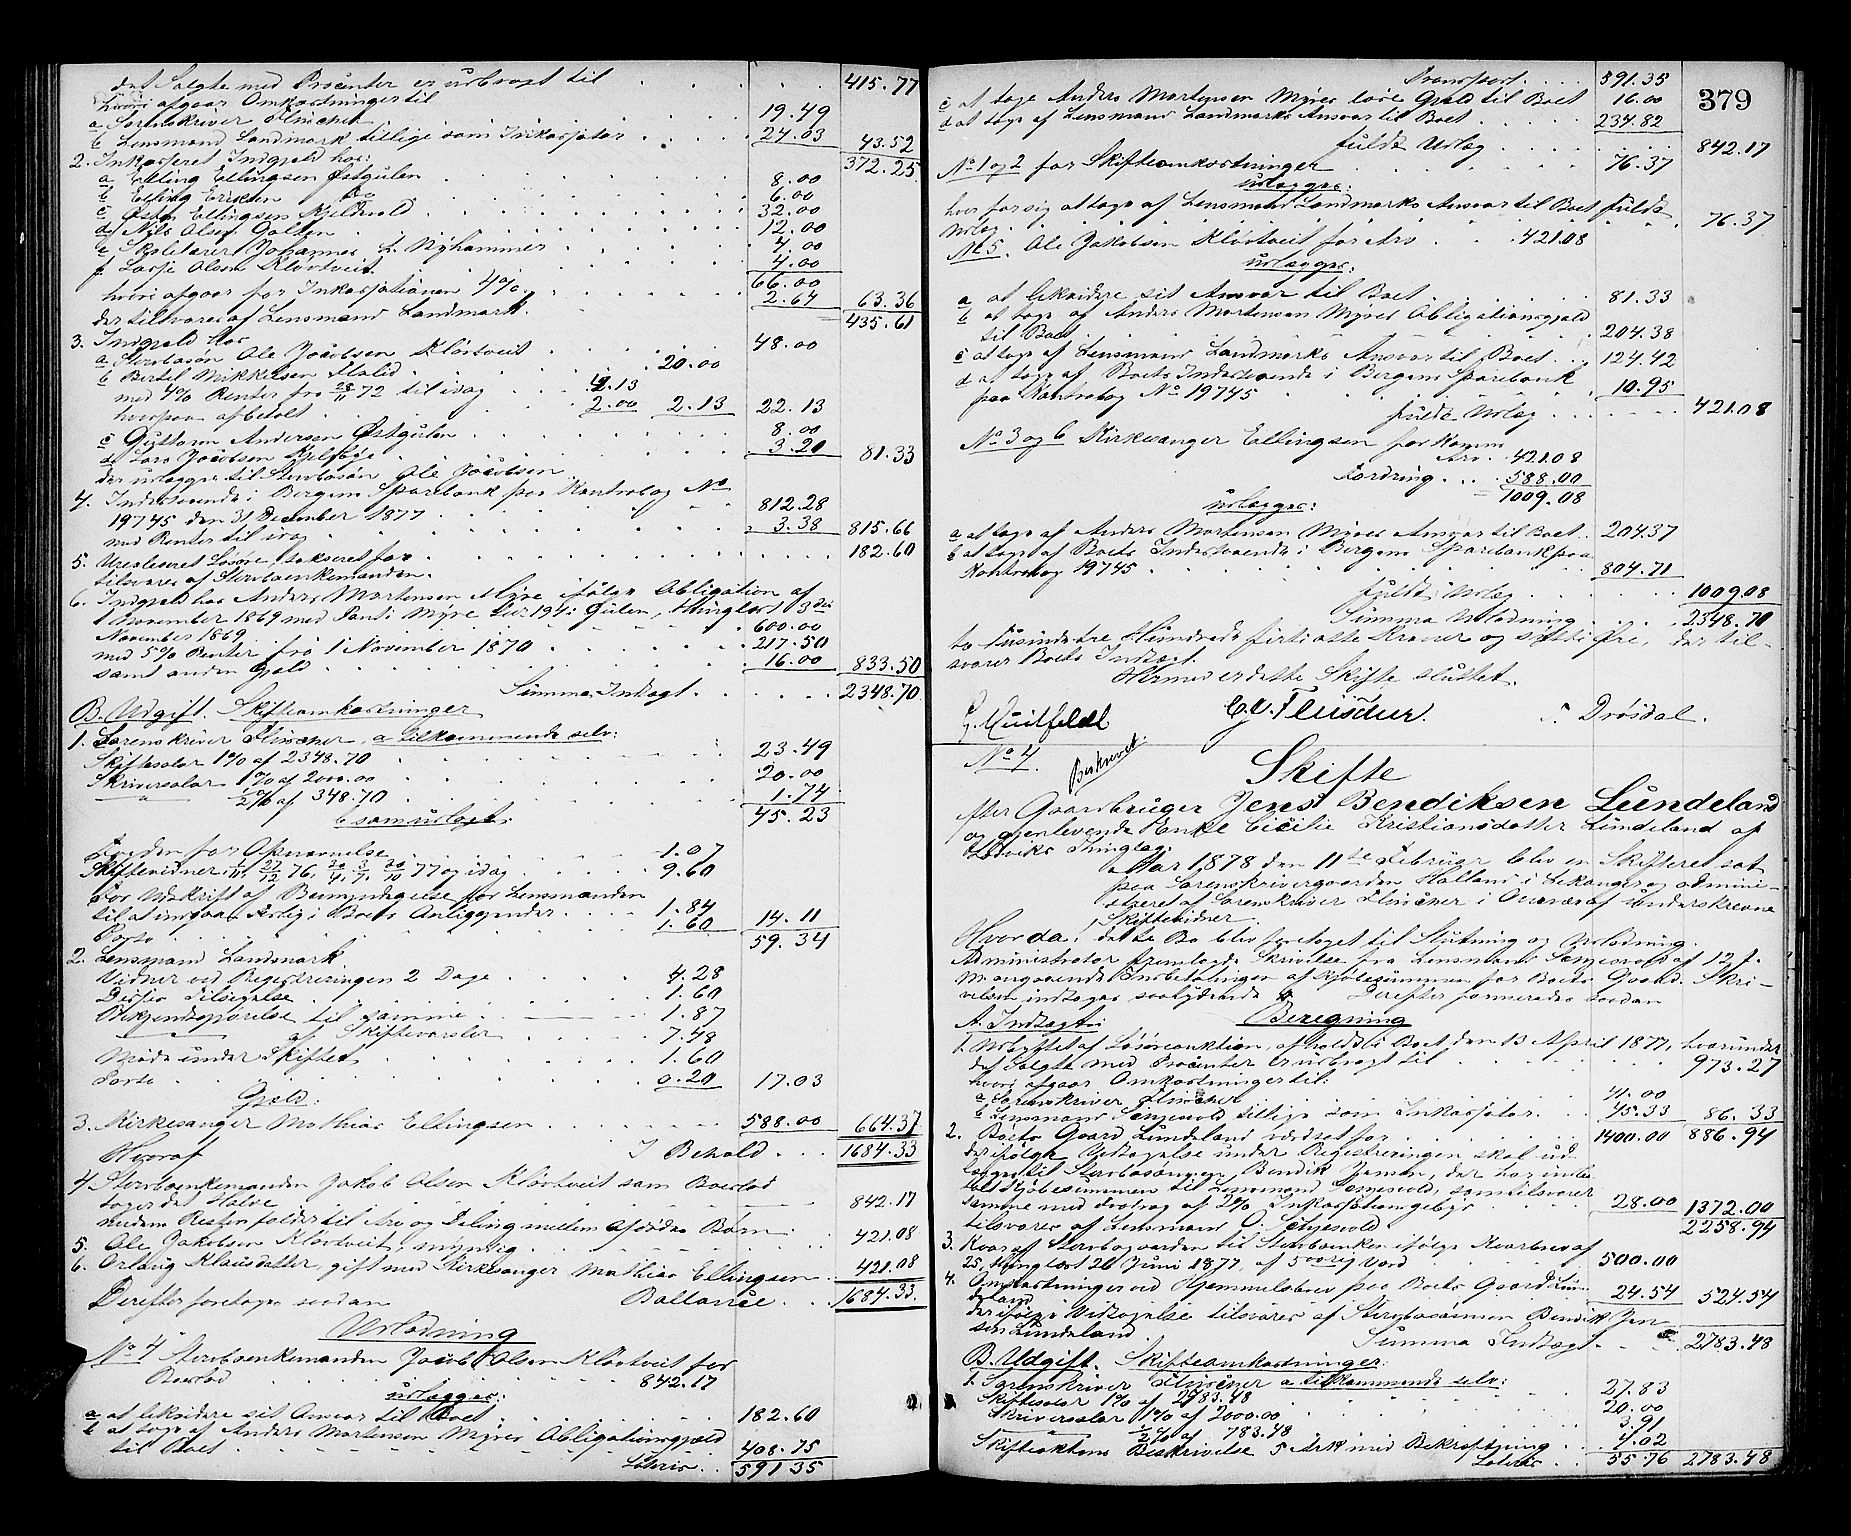 det Solgte med Procenter er udbragt til 415.77
hvori afgaar Omkostninger til
a Sorenskriver Fleischer 19.49
b Lensmand Landmark tillige som Inkassator 24.03 43.52
372.25
2. Inkasseret Indgjeld hos:
a Elling Ellingsen Østgulen 8.00
b Elling Eriksen Do 6.00
c Østen Ellingsen Kjellevold 32.00
d Nils Olsen 12.00
e Skolelærer Johannes L. Nyhammer 4.00
f Lasse Olsen Kløvtveit 4.00
66.00
hvori afgaar for Inkassationen 4% 2.64 63.36
der tilsvares af Lensmand Landmark. 435.61
3. Indgjeld hos
a Stervbosøn Ole Jacobsen Kløvtveit 48.00
b Bertel Mikkelsen 20.00
med 4% Renter fra 28/11 72 til idag 4.13
hverpaa afbetalt 2.00 2.13 22.13
c Guttorm Andersen Østgulen 8.00
d Lars Jacobsen 3.20 81.33
der udlægges til Stervbosøn Ole Jacobsen
4. Indestaaende i Bergens Sparebank paa Kontrabog No
19745 den 31 December 1877 812.28
med Renter til idag 3.38 815.66
5. Urealiseret Løsøre takseret for 182.60
tilsvares af Stervboenkemanden.
6. Indgjeld hos Anders Mortensen Myre ifølge Obligation af
1 November 1869 med Pant i Myre i Gulen, thinglæst 3die
November 1869 600.00
med 5% Renter fra 1 November 1870 217.50
samt anden Gjeld 16.00 833.50
Summa Indtægt 2348.70
B. Udgift. Skifteomkostninger
1. Sorenskriver Fleischer, a tilkommende selv:
Skiftesalær 1% af 2348.70 23.49
Skriversalær 1% af 2000.00 20.00
" 1/2% af 348.70 1.74
b samt udlagt: 45.23
for Opnævnelse 1.07
Skiftevidner 76, 77 og idag 9.60
For Udskrift af Bemyndigelse for Lensmanden
til at indgaa Forlig i Boets Anliggender 1.84
Porto 1.60 14.11
59.34
2. Lensmand Landmark
Vidner ved Registreringen 2 Dage 4.28
Disses Tilsigelse 1.60
Bekjendtgjørelse til samme 1.87
" af Skiftevarsler 7.48
Møde under Skiftet 1.60
Porto 0.20 17.03
Gjeld:
3. Kirkesanger Mathias Ellingsen 588.00 664.37
Hvoraf I Behold 1684.33
4 Stervboenkemanden Jakob Olsen Kløvtveit som Boeslod
tager det Halve 842.17
medens Resten falder til Arv og Deling mellem afdødes Børn:
5. Ole Jakobsen Kløvtveit, myndig 421.08
6. Orlaug Klausdatter, gift med Kirkesanger Mathias Ellingsen 421.08
Derefter foretoges saadan Ballance 1684.33
Udlodning
No 4 Stervboenkemanden Jacob Olsen Kløvtveit for
Boeslod 842.17
udlægges:
a at likvidere sit Ansvar til Boet 182.60
b at tage af Anders Mortensen Myres Obligationsgjæld
til Boet 408.75
Lateris 591.35
379
Transport 591.35
c at tage Anders Mortensen Myres løse Gjeld til Boet 16.00
d at tage af Lensmand Landmarks Ansvar til Boet 234.82
fuldt Udlæg 842.17
No 1 og 2 for Skifteomkostninger 76.37
udlægges:
hver for sig at tage af Lensmand Landmarks Ansvar til Boet fuldt
Udlæg 76.37
No 5. Ole Jakobsen Kløvtveit for Arv 421.08
udlægges:
a at likvidere sit Ansvar til Boet 81.33
b at tage af Anders Mortensen Myres Obligationsgjeld
til Boet 204.38
c at tage af Lensmand Landmarks Ansvar til Boet 124.42
d at tage af Boets Indestaaende i Bergens Sparebank
paa Kontrabog No 19745 10.95
fuldt Udlæg 421.08
No 3 og 6 Kirkesanger Ellingsen for Kones
Arv 421.08
Fordring 588.00
1009.08
udlægges:
a at tage af Anders Mortensen Myres Ansvar til Boet 204.37
b at tage af Boets Indestaaende i Bergens Sparebank paa
Kontrabog 19745 804.71
fuldt Udlæg 1009.08
Summa Udlodning 2348.70
to Tusinde tre Hundrede firti otte Kroner og sytti Øre, der til-
svarer Boets Indtægt.
Hermed er dette Skifte sluttet.
G. Huitfeldt C.C. Fleischer. Drøsdal.
No 4. Beskrevet.
Skifte
efter Gaardbruger Jens Bendiksen Lundeland
og gjenlevende Enke Cicilie Kristiansdatter Lundeland af
Thinglag.
Aar 1878 den 11te Februar blev en Skifteret sat
paa Sorenskrivergaarden Holland i Lekanger og admini-
streret af Sorenskriver Fleischer i Overvær af underskrevne
Skiftevidner.
Hvorda: dette Bo blev foretaget til Slutning og Udlodning.
Administrator fremlagde Skrivelse fra Lensmand Sengesvold af 12 f.
M angaaende Indbetalingen af Kjøbesummen for Boets Gaard. Skri-
velsen indtages saalydende Derefter formeredes saadan
Beregning
A. Indtægt:
1. Udbyttet af Løsøreauktion, afholdt i Boet den 13 April 1877, hvorunder
det Solgte med Procenter er udbragt til 973.27
hvori afgaar Omkostninger til:
a Sorenskriver Fleischer 41.00
b Lensmand Sengesvold tillige som Inkassator 45.33 86.33
2. Boets Gaard Lundeland værdset for 1400.00 886.94
der ifølge Vedtagelse under Registreringen skal ud-
lægges til Stervbosønnen Bendik Jensen, der har indbe-
talt Kjøbesummen til Lensmand Sengesvold, som tilsvarer
samme med Fradrag af 2% Inkassationsgebyr 28.00 1372.00
tilsvares af Lensmand O. Sengesvold 2258.94
3. Kaar af Stervbogaarden til Stervboenken ifølge Kaarbrev af
25, thinglæst 26 Juni 1877, af 5aarig Værd 500.00
4. Omkostninger ved Hjemmelsbrev paa Boets Gaard Lun-
deland 24.54 524.54
der ifølge Vedtagelse tilsvares af Stervbosønnen Bendik Jen-
sen Lundeland. Summa Indtægt 2783.48
B. Udgift. Skifteomkostninger:
1. Sorenskriver Fleischer a tilkommende selv:
Skiftesalær 1% af 2783.48 27.83
Skriversalær 1% af 2000.00 20.00
" 1/2% af 783.48 3.91
Skifteaktens Beskrivelse 5 Ark med Bekræftning 4.02
Lateris 55.76 2783.48